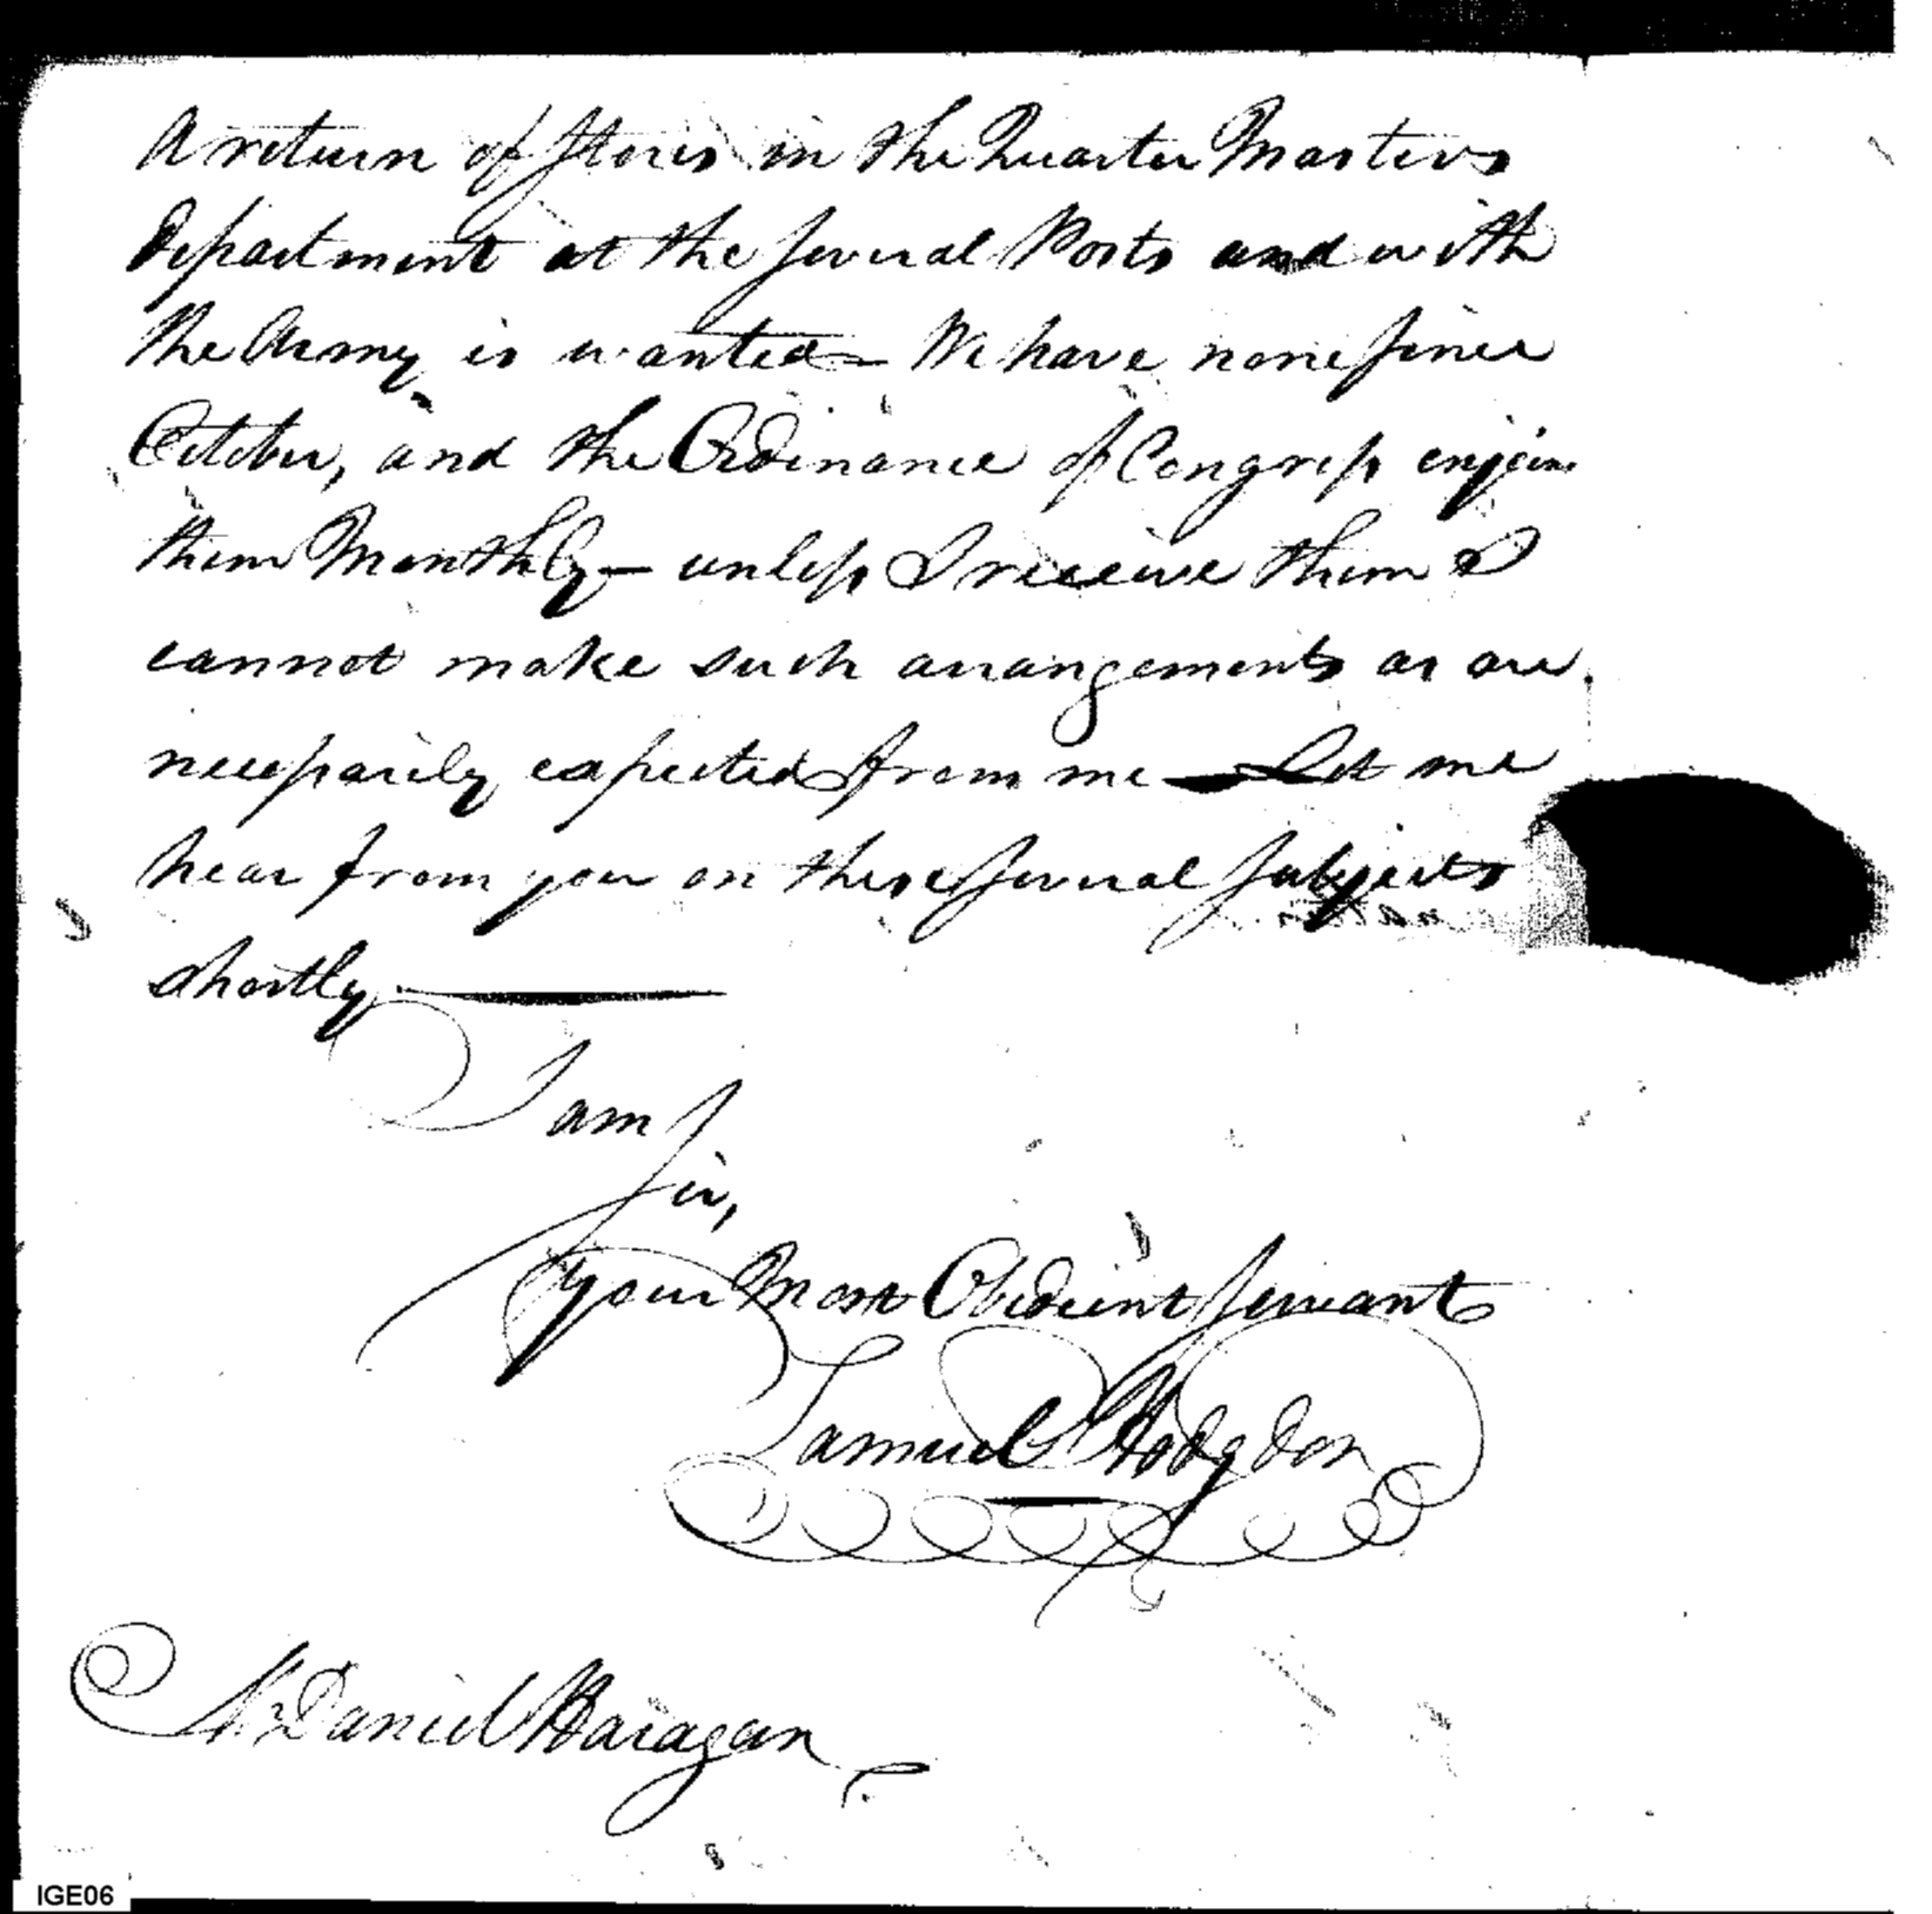 A return of Stores in the Quarter Masters
Department at the several Posts and with
the Army is wanted — We have none since
October, and the Ordinance of Congress enjoins
them Monthly — unless I receive them I
cannot make such arrangements as are
necessarily expected from me — Let me
hear from you on these several subjects
shortly —
I am
Sir,
your Most Obedient Servant
Samuel Hodgdon
Mr Daniel Baragan
IGE06